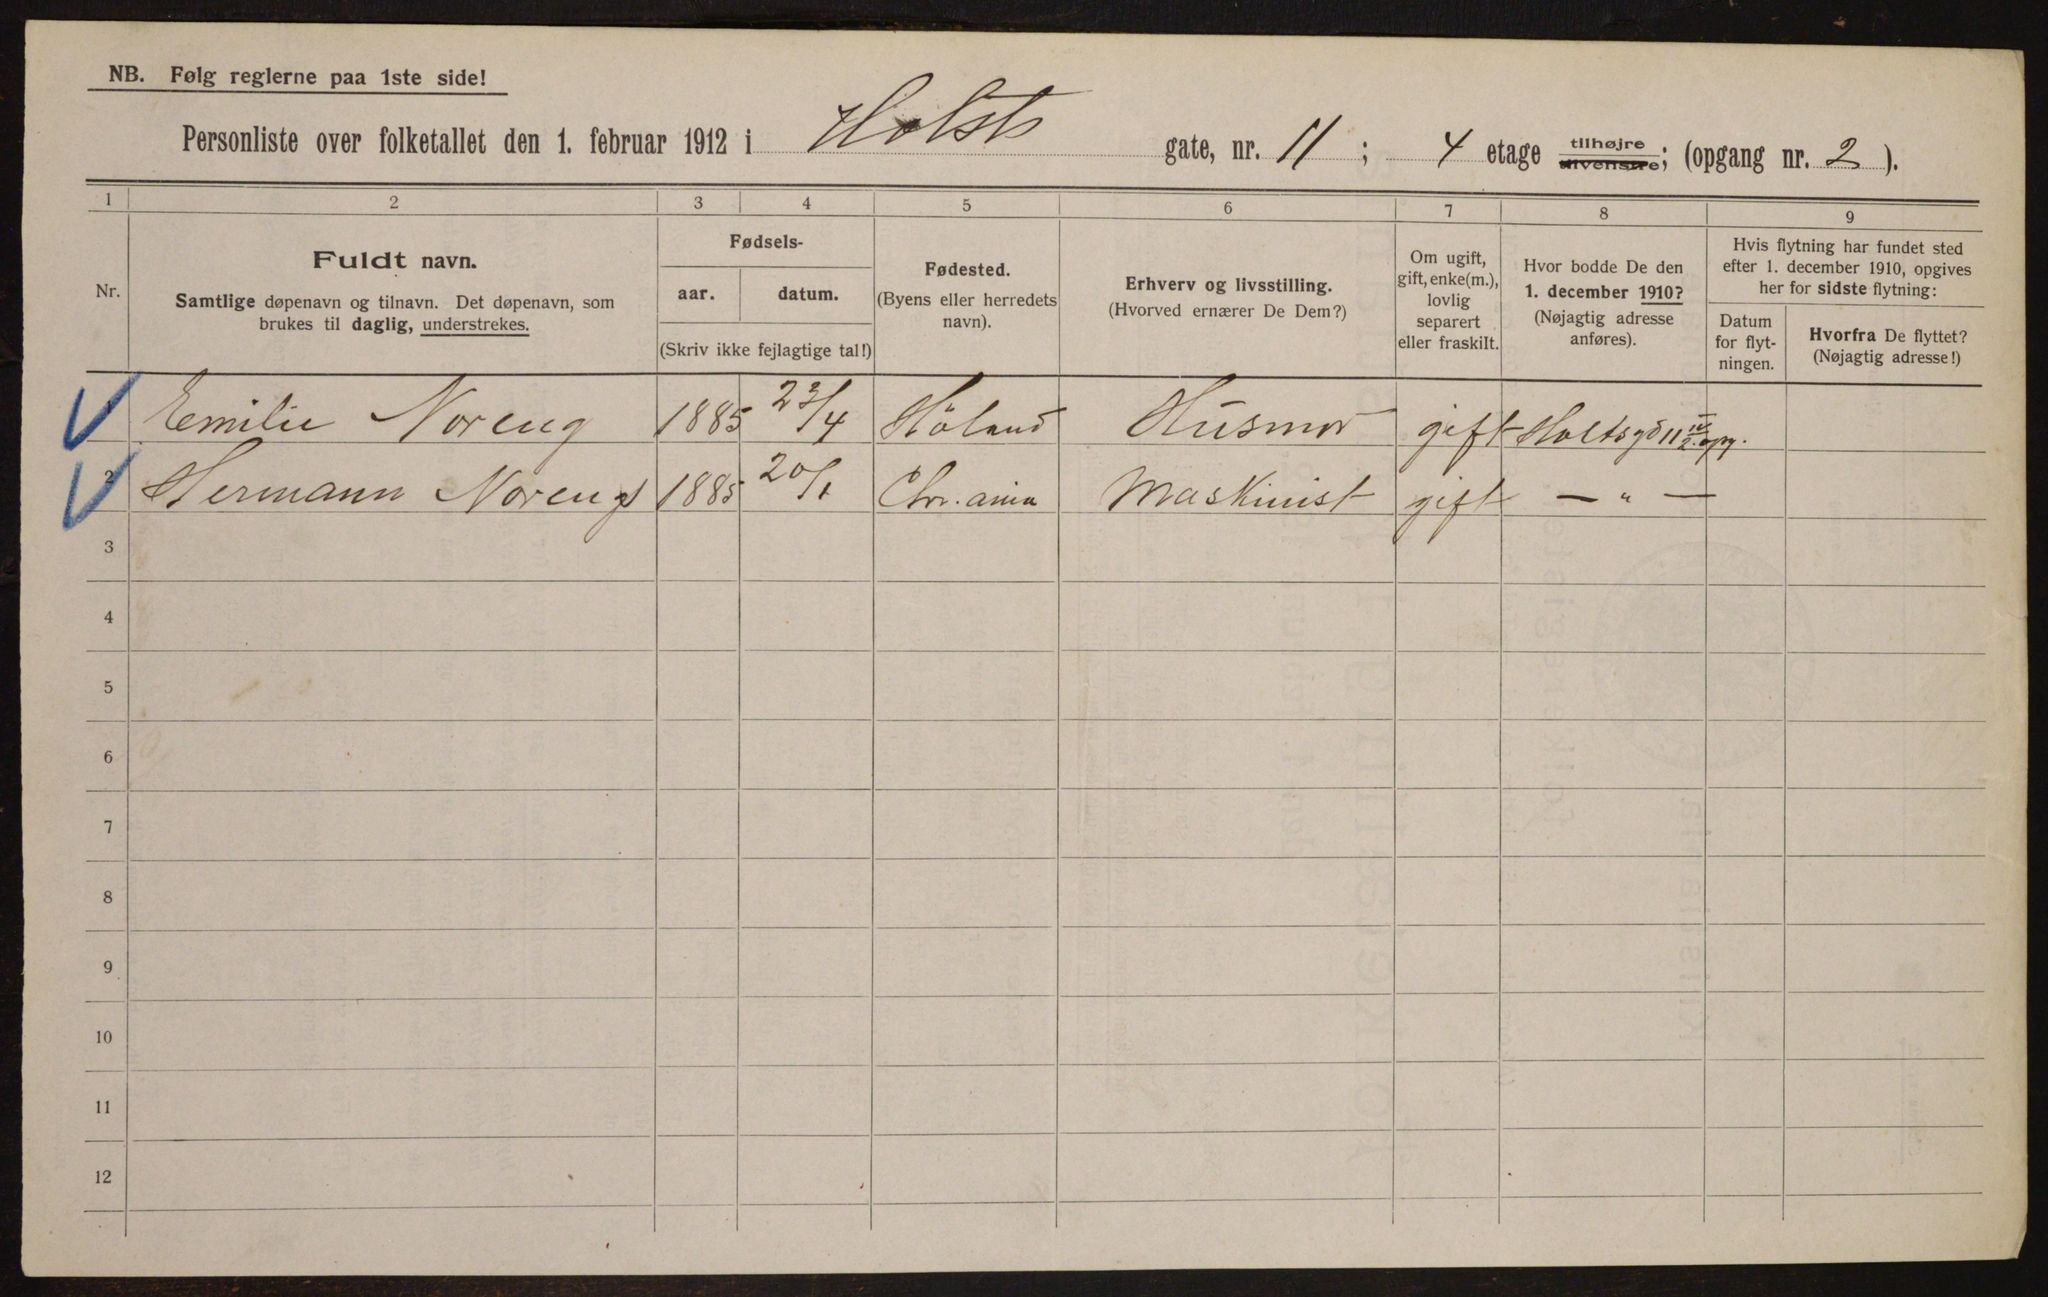 NB. Følg reglerne paa 1ste side!
Personliste over folketallet den 1. februar 1912 i Holsts gate, nr. 11 ; 4 etage tilhøjre tilvenstre; (opgang nr. 2 ).
1 2 3 4 5 6 7 8 9
Nr.
Fuldt navn.
Samtlige døpenavn og tilnavn. Det døpenavn, som
brukes til daglig, understrekes.
Fødsels-
aar. datum.
(Skriv ikke fejlagtige tal!)
Fødested.
(Byens eller herredets
navn).
Erhverv og livsstilling.
(Hvorved ernærer De Dem?)
Om ugift,
gift, enke(m.),
lovlig
separert
eller fraskilt.
Hvor bodde De den
1. december 1910?
(Nøjagtig adresse
anføres).
Hvis flytning har fundet sted
efter 1. december 1910, opgives
her for sidste flytning:
Datum
for flyt-
ningen.
Hvorfra De flyttet?
(Nøjagtig adresse!)
1 Emilie Noreng 1885 23/4 Höland Húsmor gift Holtsgd 11 IV 2. opg.
2 Hermann Noreng 1885 20/1 Chr.ania Maskinist gift — " —
3
4
5
6
7
8
9
10
11
12